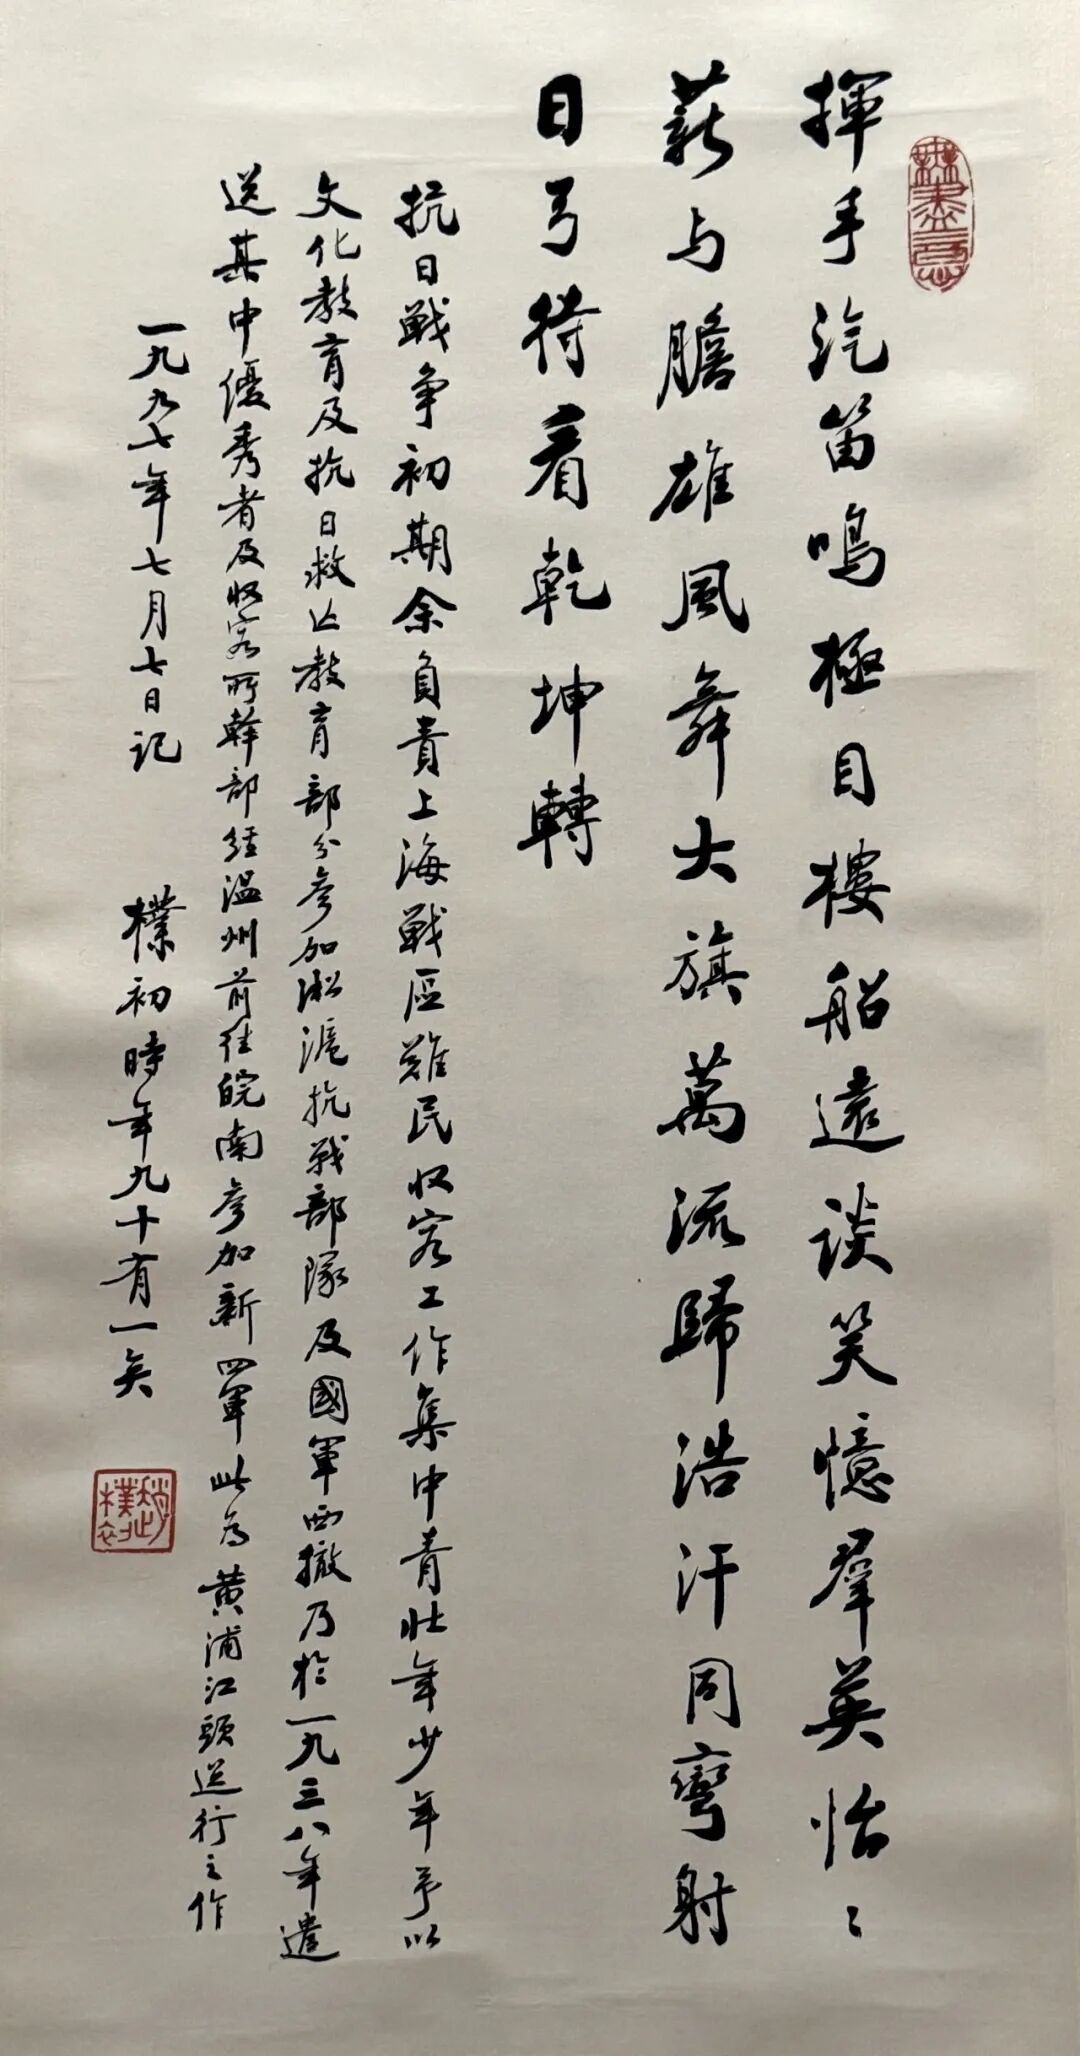 無盡意
揮手汽笛鳴極目樓船遠談笑憶羣英怡〻
薪与膽雄風舞大旗萬流歸浩汗同彎射
日弓待看乾坤轉
抗日戰争初期余負責上海戰區難民收容工作集中青壯年少年予以
文化教育及抗日救亡教育部分參加淞滬抗战部隊及國軍西撤乃於一九三八年遣
送其中優秀者及收容所幹部经温州前往皖南參加新四軍此为黄浦江頭送行之作
一九九七年七月七日記 樸初時年九十有一矣
趙樸初